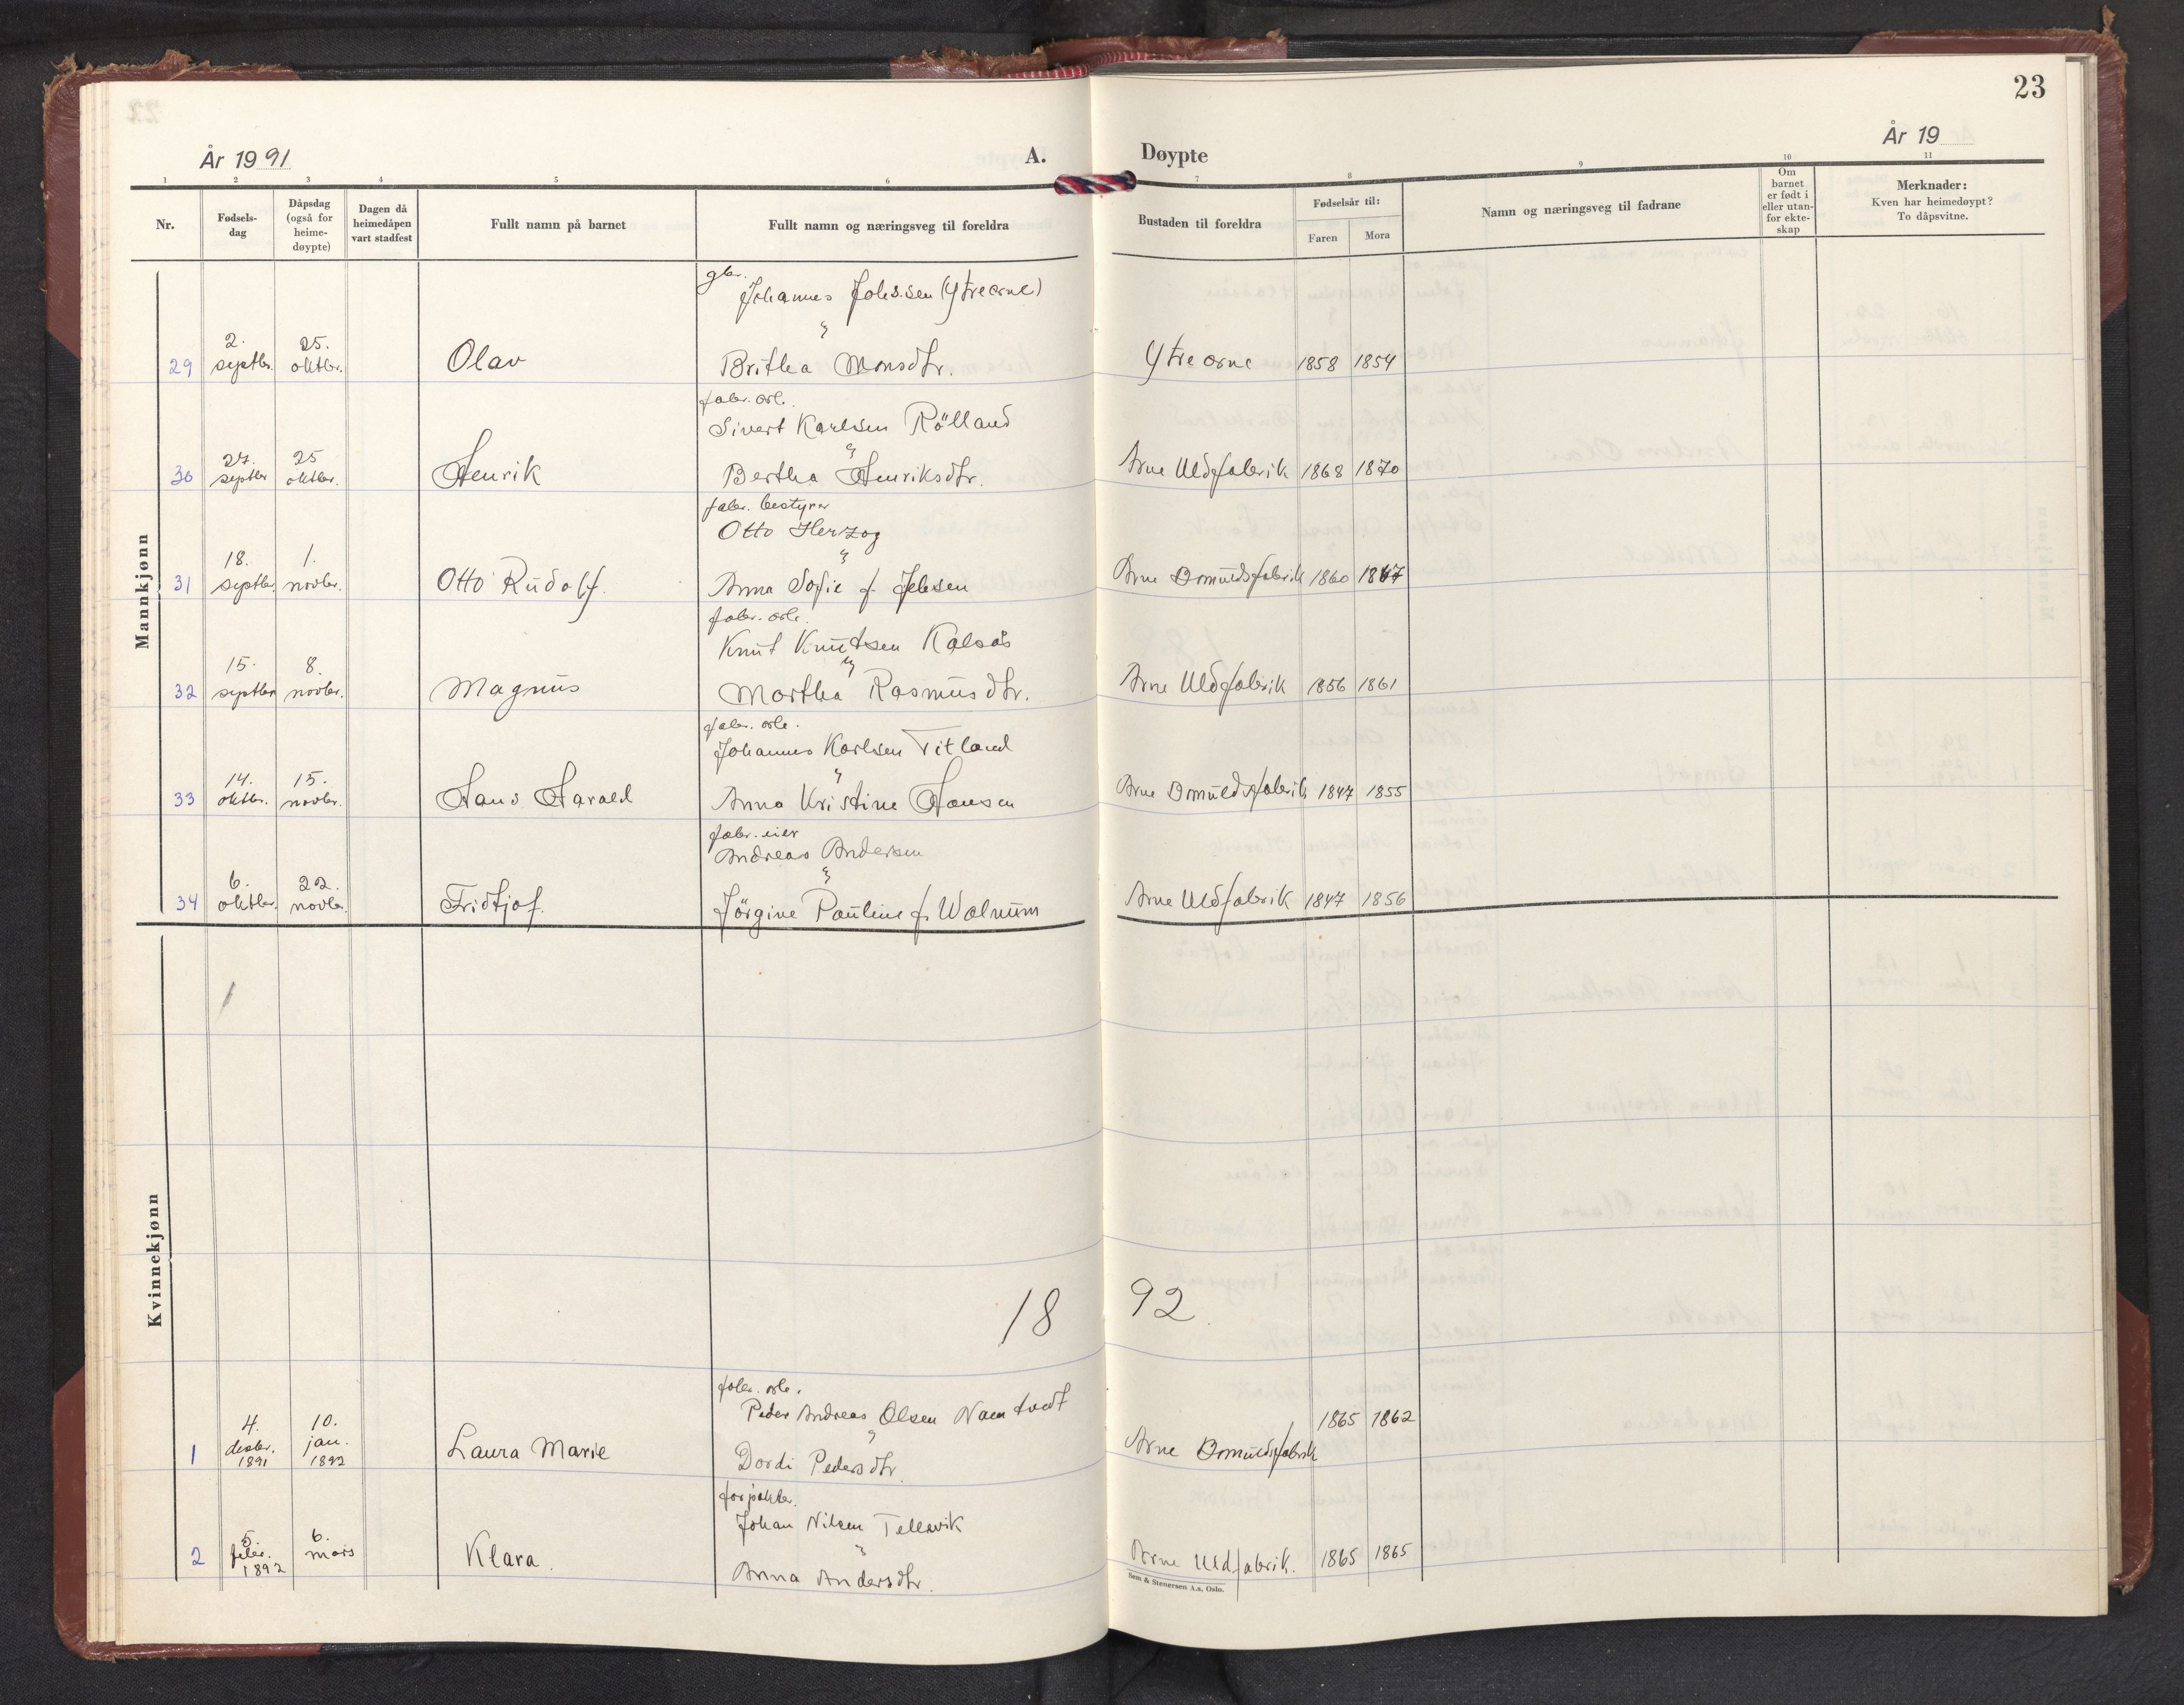 23
År 1991
A.
Døypte
År 19
1 2 3 4 5 6 7 8 9 10 11
Nr.
Fødsels-
dag
Dåpsdag
(også for
heime-
døypte)
Dagen då
heimedåpen
vart stadfest
Fullt namn på barnet
Fullt namn og næringsveg til foreldra
Bustaden til foreldra
Fødselsår til:
Faren
Mora
Namn og næringsveg til fadrane
Om
barnet
er født i
eller utan-
for ekte-
skap
Merknader:
Kven har heimedøypt?
To dåpsvitne.
Mannkjønn
gbr.
Johannes Johs.sen (Ytre arne)
2. 25.
29 septbr. oktbr. Olav Britha Monsdtr. Ytre arne 1858 1854
fabr. arb.
Sivert Karlsen Rölland
27. 25
30 septbr oktbr. Henrik Bertha Henriksdtr. Arne Uldfabrik 1868 1870
fabr. bestyrer
Otto Herzog
18. 1.
31 septbr. novbr. Otto Rudolf. Anna Sofie f. Jebsen Arne Bomuldsfabrik 1860 1867
fabr. arb.
Knut Knutsen Kalsås
15. 8.
32 septbr novbr. Magnus Martha Rasmusdtr. Arne Uldfabrik 1856 1861
fabr. arb.
Johannes Karlsen Titland
14. 15.
33 oktbr. novbr. Hans Harald Anna Kristine Hansen Arne Bomuldsfabrik 1847 1855
fabr. eier
Andreas Andersen
6. 22.
34 oktbr. novbr. Fridtjof. Jörgine Pauline f. Walnum Arne Uldfabrik 1847 1856
Kvinnekjønn
18 92
fabr. arb.
Peder Andreas Olsen Namtvedt
4. 10. 1865 1862
desbr. jan.
1 1891 1892 Laura Marie Dordi Pedersdtr. Arne Bomuldsfabrik
forpakter.
Johan Nilsen Tellevik
5. 6.
2 febr. mars Klara. Anna Andersdtr. Arne Uldfabrik. 1865 1865
1892
Sem & Stenersen A.s, Oslo.